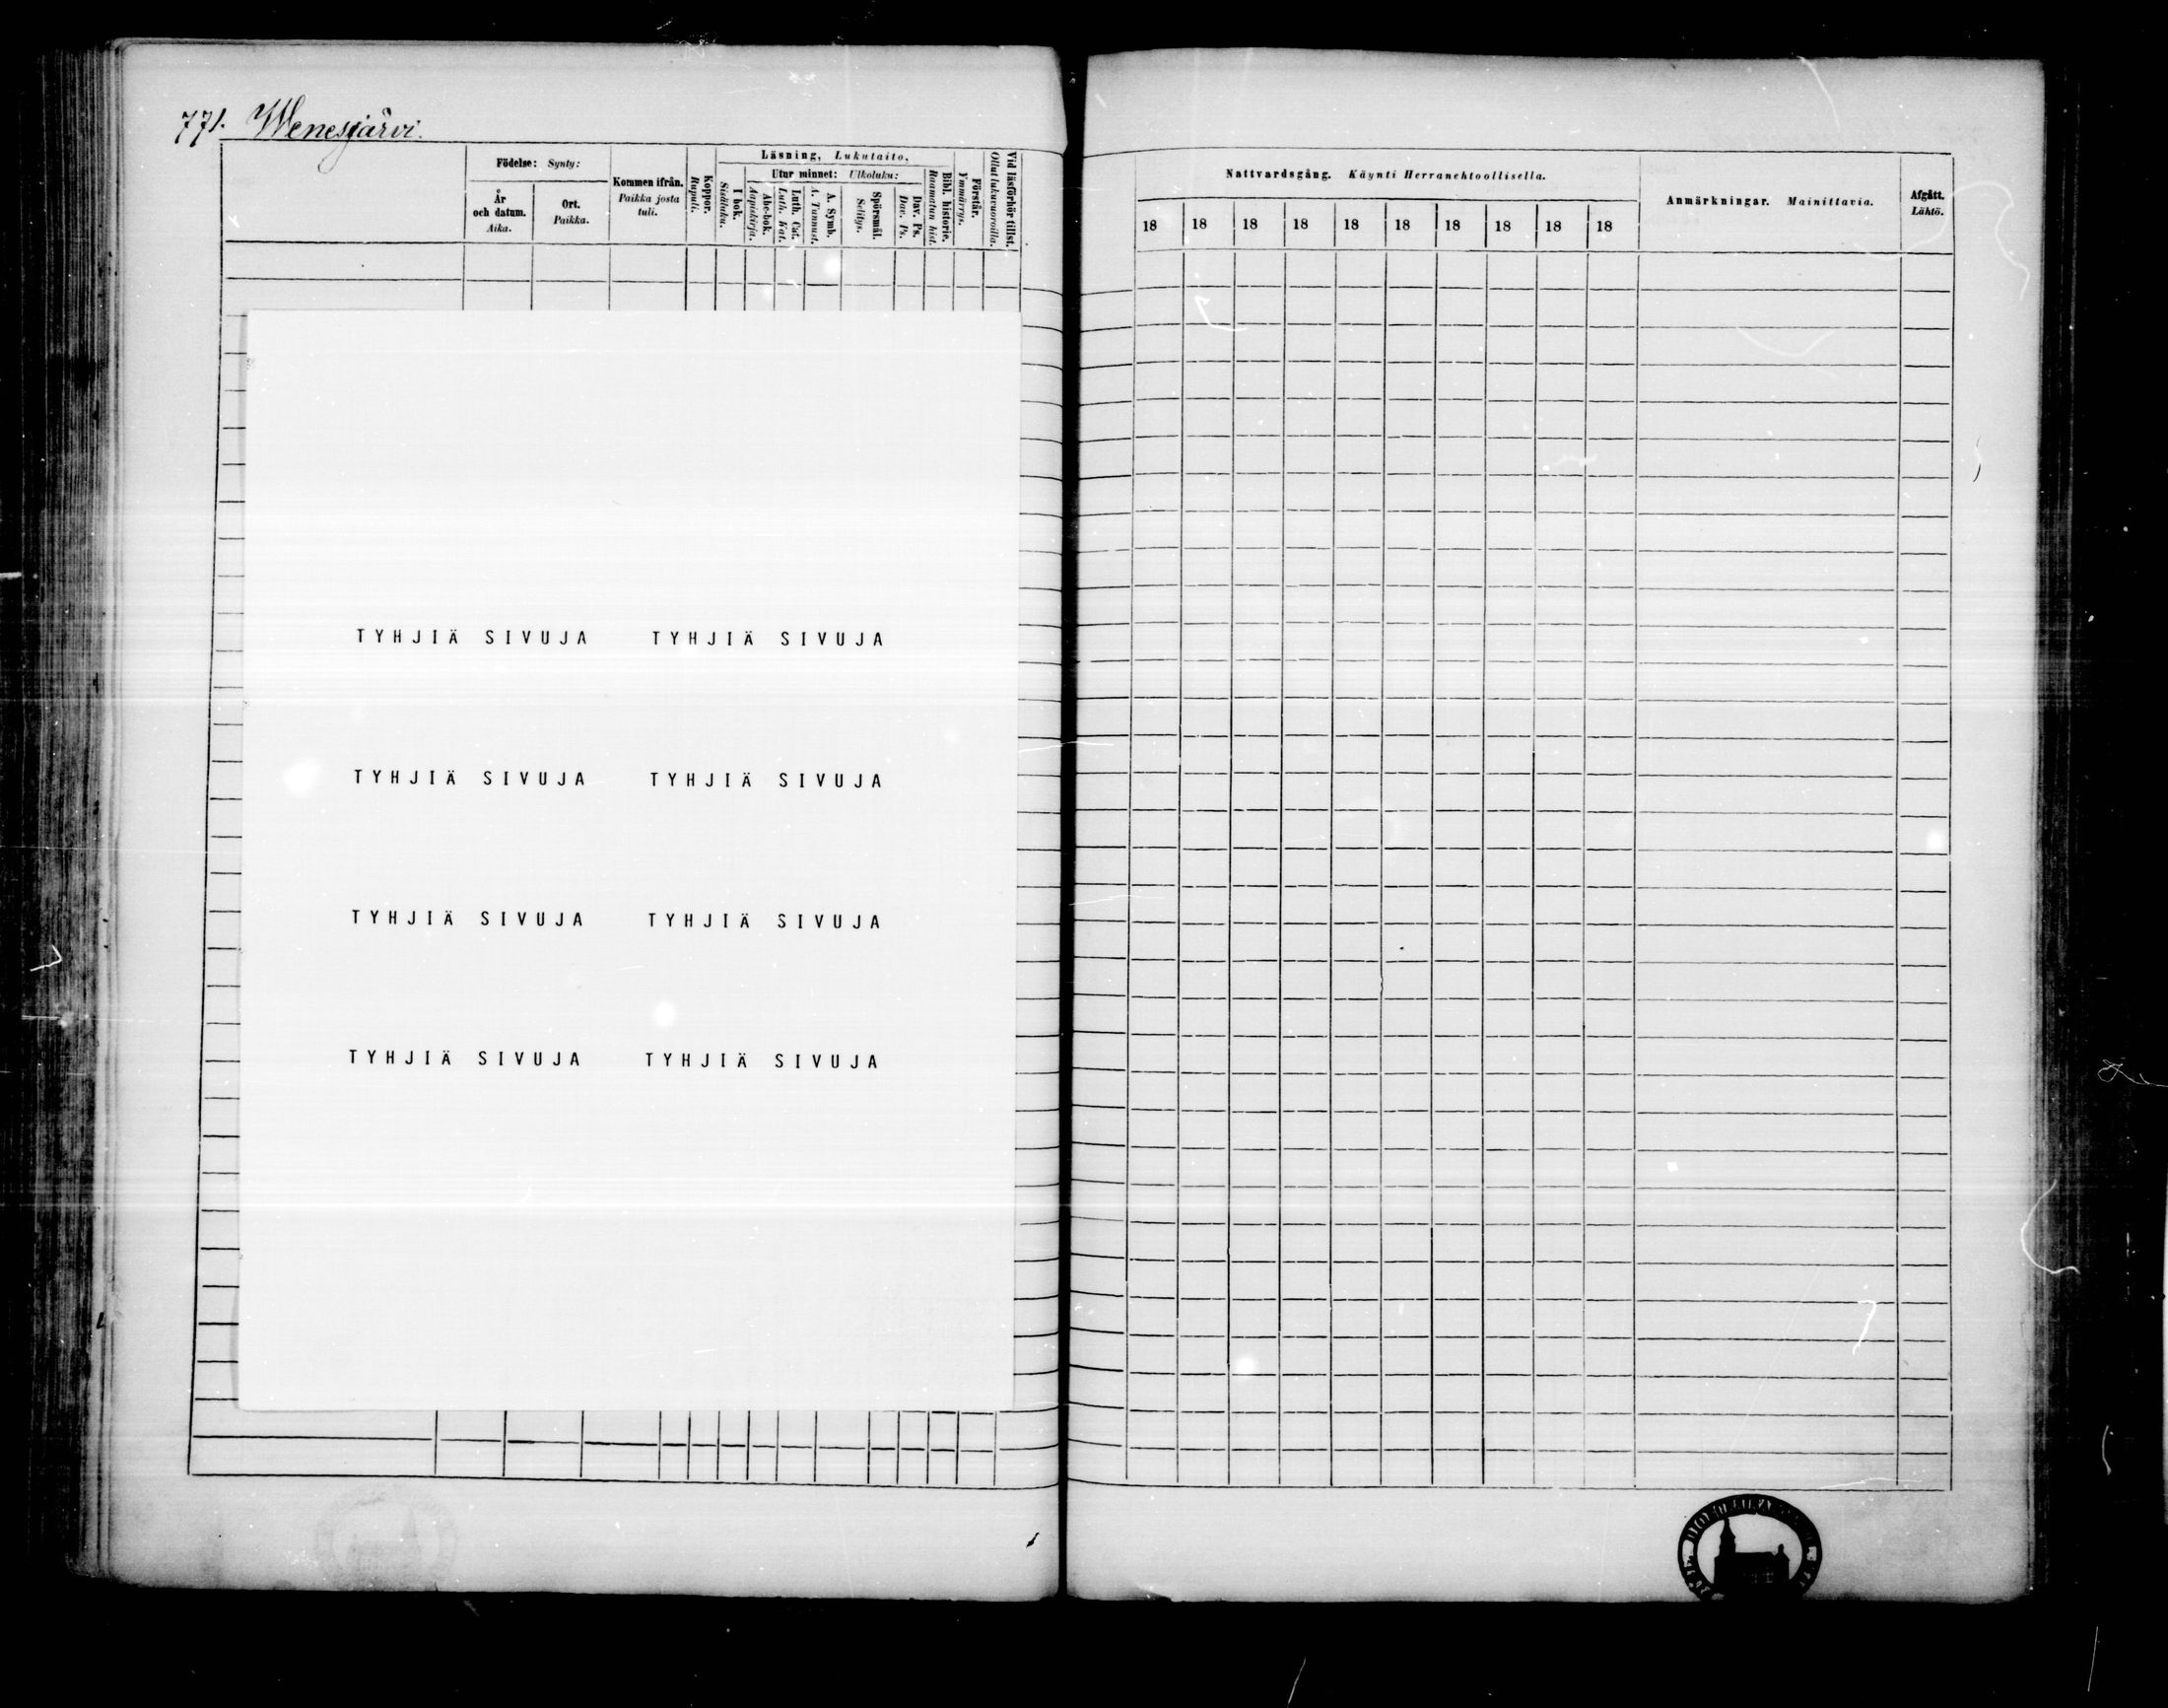 771. Wenesjärvi.
Födelse: Synty:
År
och datum.
Aika.
Ort.
Paikka.
Kommen ifrån.
Paikka josta
tuli.
Koppor.
Rupuli.
Läsning, Lukutaito,
I bok.
Sisäluku.
Utur minnet: Ulkoluku:
Abc-bok.
Aapiskirja.
Luth. Cat.
Luth. Kat.
A. Symb.
A. Tunnust.
Spörsmål.
Selitys.
Dav. Ps.
Dav. Ps.
Bibl. historie.
Raamatun hist.
Förstår.
Ymmärrys.
Vid läsförhör tillst.
Ollut lukuvuoroilla.
Nattvardsgång. Käynti Herranehtoollisella.
18 18 18 18 18 18 18 18 18 18
Anmärkningar. Mainittavia.
Afgått.
Lähtö.
TYHJIÄ SIVUJA TYHJIÄ SIVUJA
TYHJIÄ SIVUJA TYHJIÄ SIVUJA
TYHJIÄ SIVUJA TYHJIÄ SIVUJA
TYHJIÄ SIVUJA TYHJIÄ SIVUJA